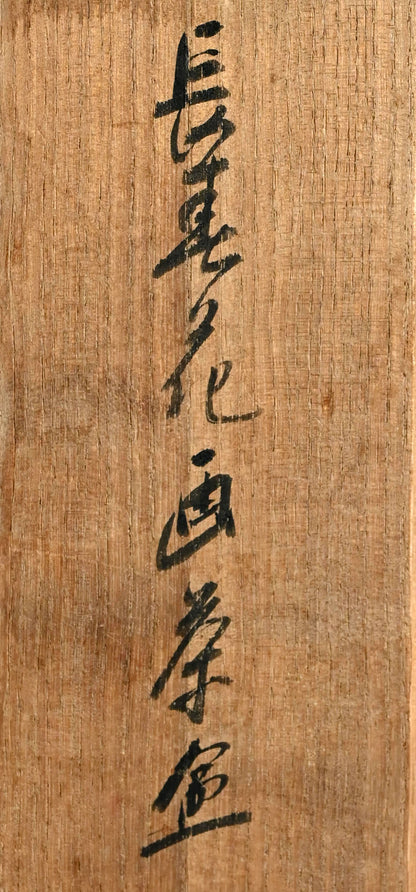 長春花画茶盌